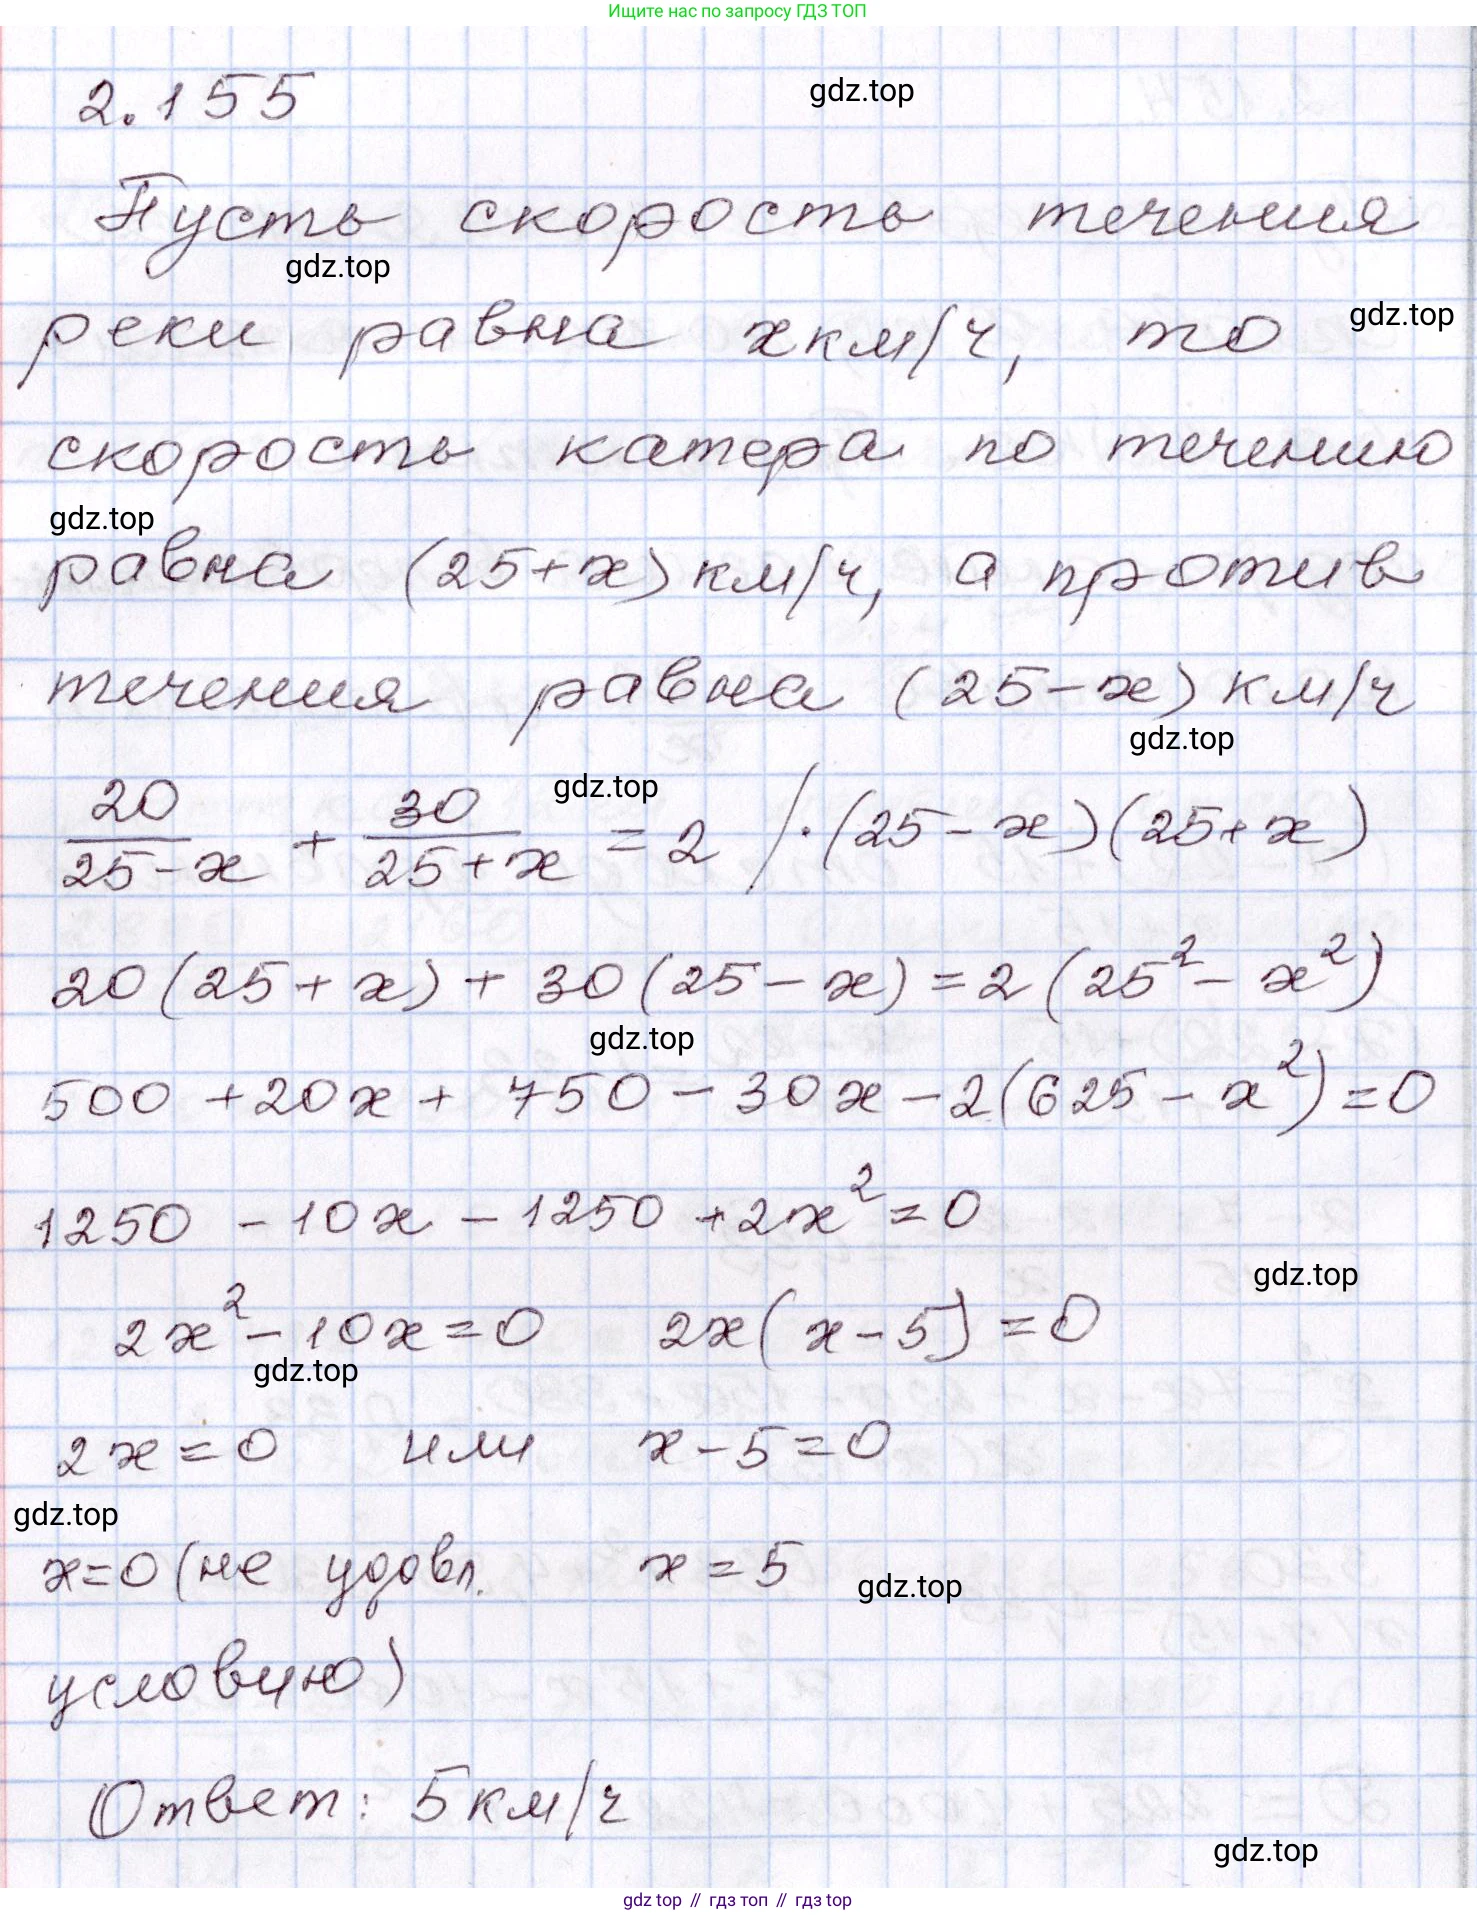 Ищите нас по запросу ГДЗ ТОП
2.155
gdz.top
Пусть скорость течения
gdz.top
реки равна x км/ч, то
gdz.top
скорость катера по течению
gdz.top
равна (25+x) км/ч, а против
течения равна (25-x) км/ч
gdz.top
20/(25-x) + 30/(25+x) = 2 /·(25-x)(25+x)
gdz.top
20(25+x) + 30(25-x) = 2(25²-x²)
gdz.top
500+20x+750-30x-2(625-x²)=0
1250-10x-1250+2x²=0
gdz.top
2x²-10x=0 2x(x-5)=0
gdz.top
2x=0 или x-5=0
gdz.top
x=0 (не удовл. x=5
gdz.top
условию)
Ответ: 5 км/ч
gdz.top
gdz top // гдз топ // гдз top